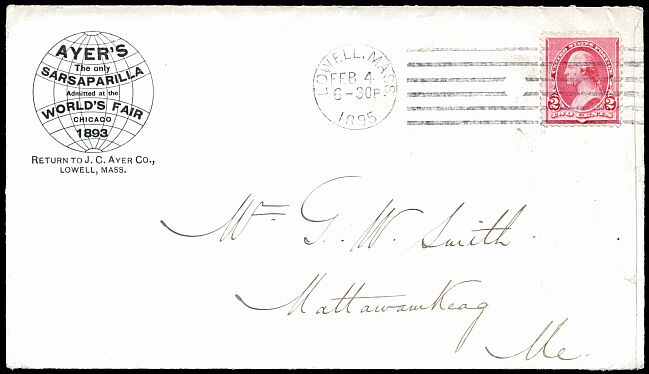 AYER'S
The only
SARSAPARILLA
Admitted at the
WORLD'S FAIR
CHICAGO
1893
RETURN TO J. C. AYER CO.,
LOWELL, MASS.
LOWELL, MASS.
FEB 4
6-30P
1895
UNITED STATES POSTAGE
2 2
TWO CENTS
Mr. G. W. Smith
Mattawamkeag
Me.